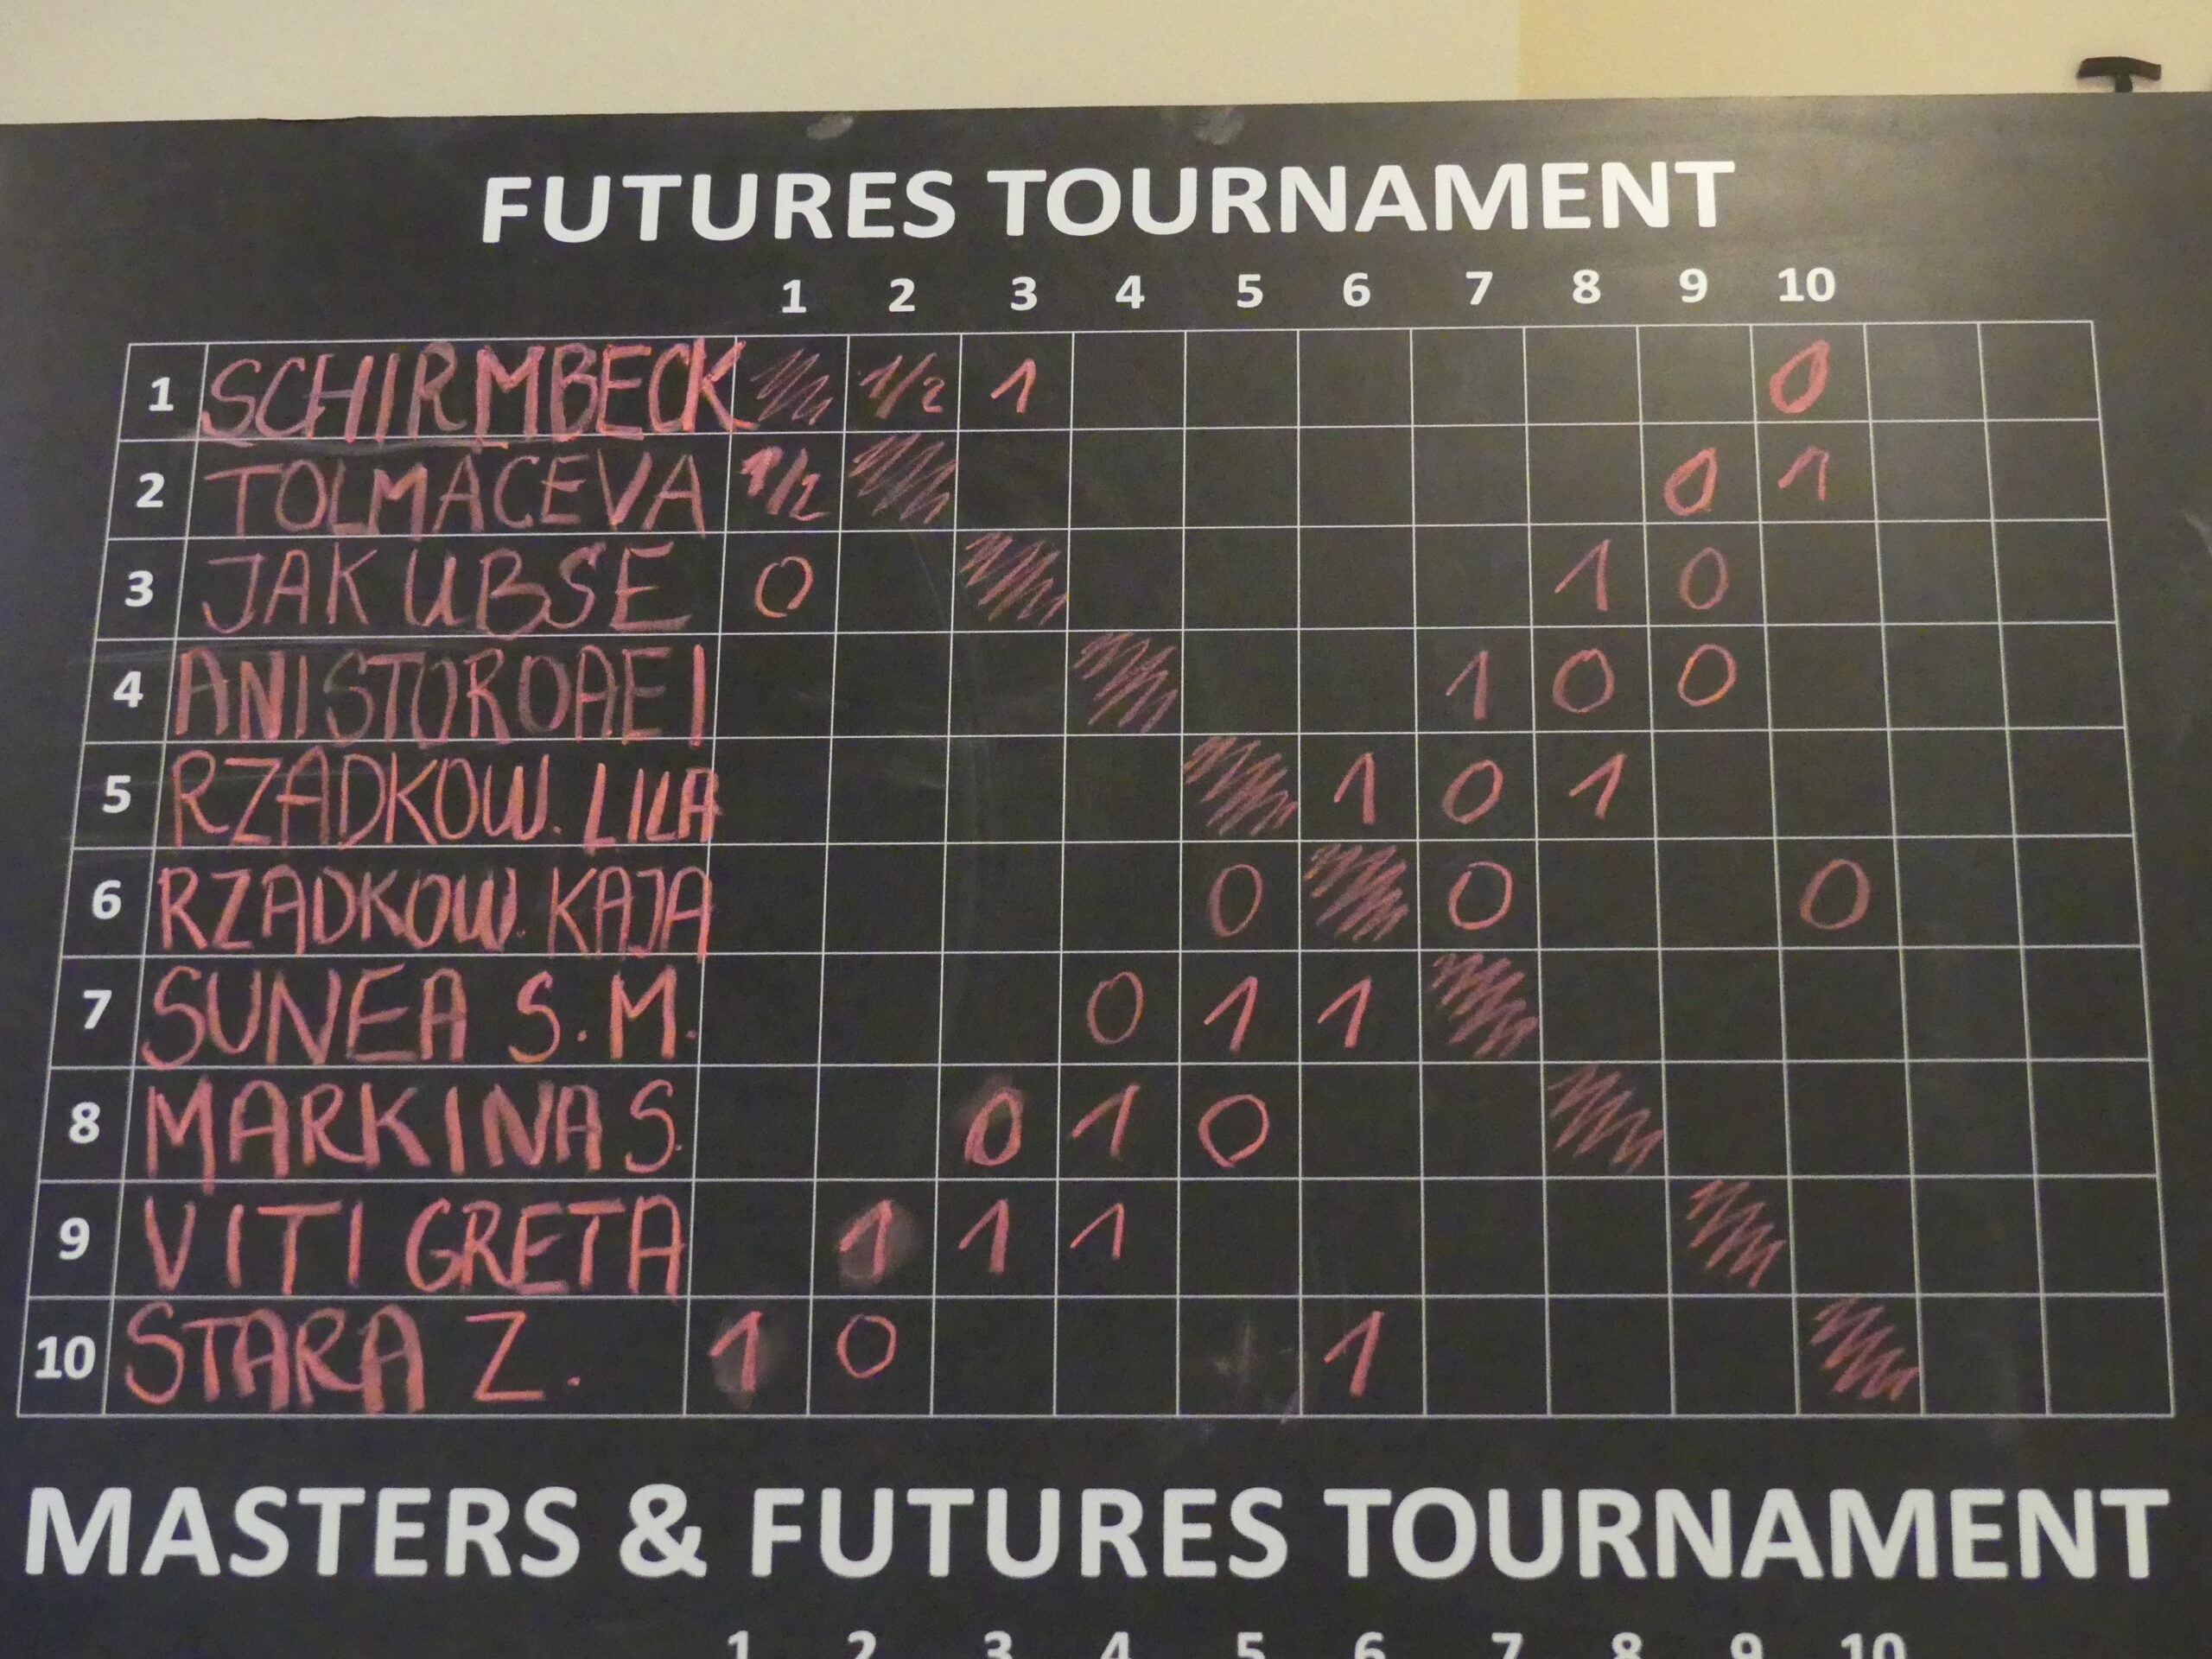 FUTURES TOURNAMENT
1 2 3 4 5 6 7 8 9 10
1 SCHIRMBECK 1/2 1 0
2 TOLMACEVA 1/2 0 1
3 JAKUBSE 0 1 0
4 ANISTOROAEI 1 0 0
5 RZADKOW. LILA 1 0 1
6 RZADKOW. KAJA 0 0 0
7 SUNEA S.M. 0 1 1
8 MARKINA S. 0 1 0
9 VITI GRETA 1 1 1
10 STARA Z. 1 0 1
MASTERS & FUTURES TOURNAMENT
1 2 3 4 5 6 7 8 9 10